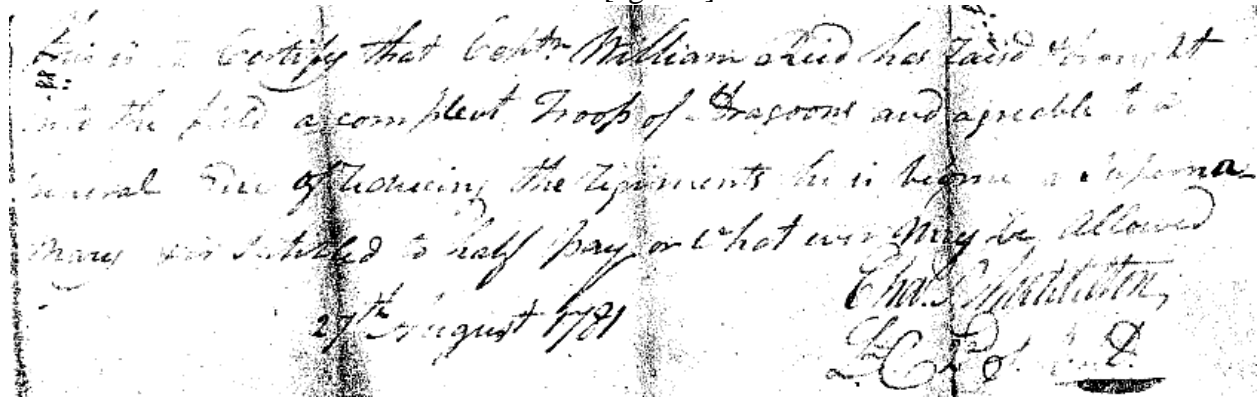 this is to Certify that Captn William Reid has Raisd & brought
into the field a compleat Troop of Dragoons and agreeable to a
General of Reducing the Regiments he is become a Superna-
mary is Intitled to half pay or what ever may be Allowed
27th August 1781
Chas. S Middleton,
Lt. Col. of D.